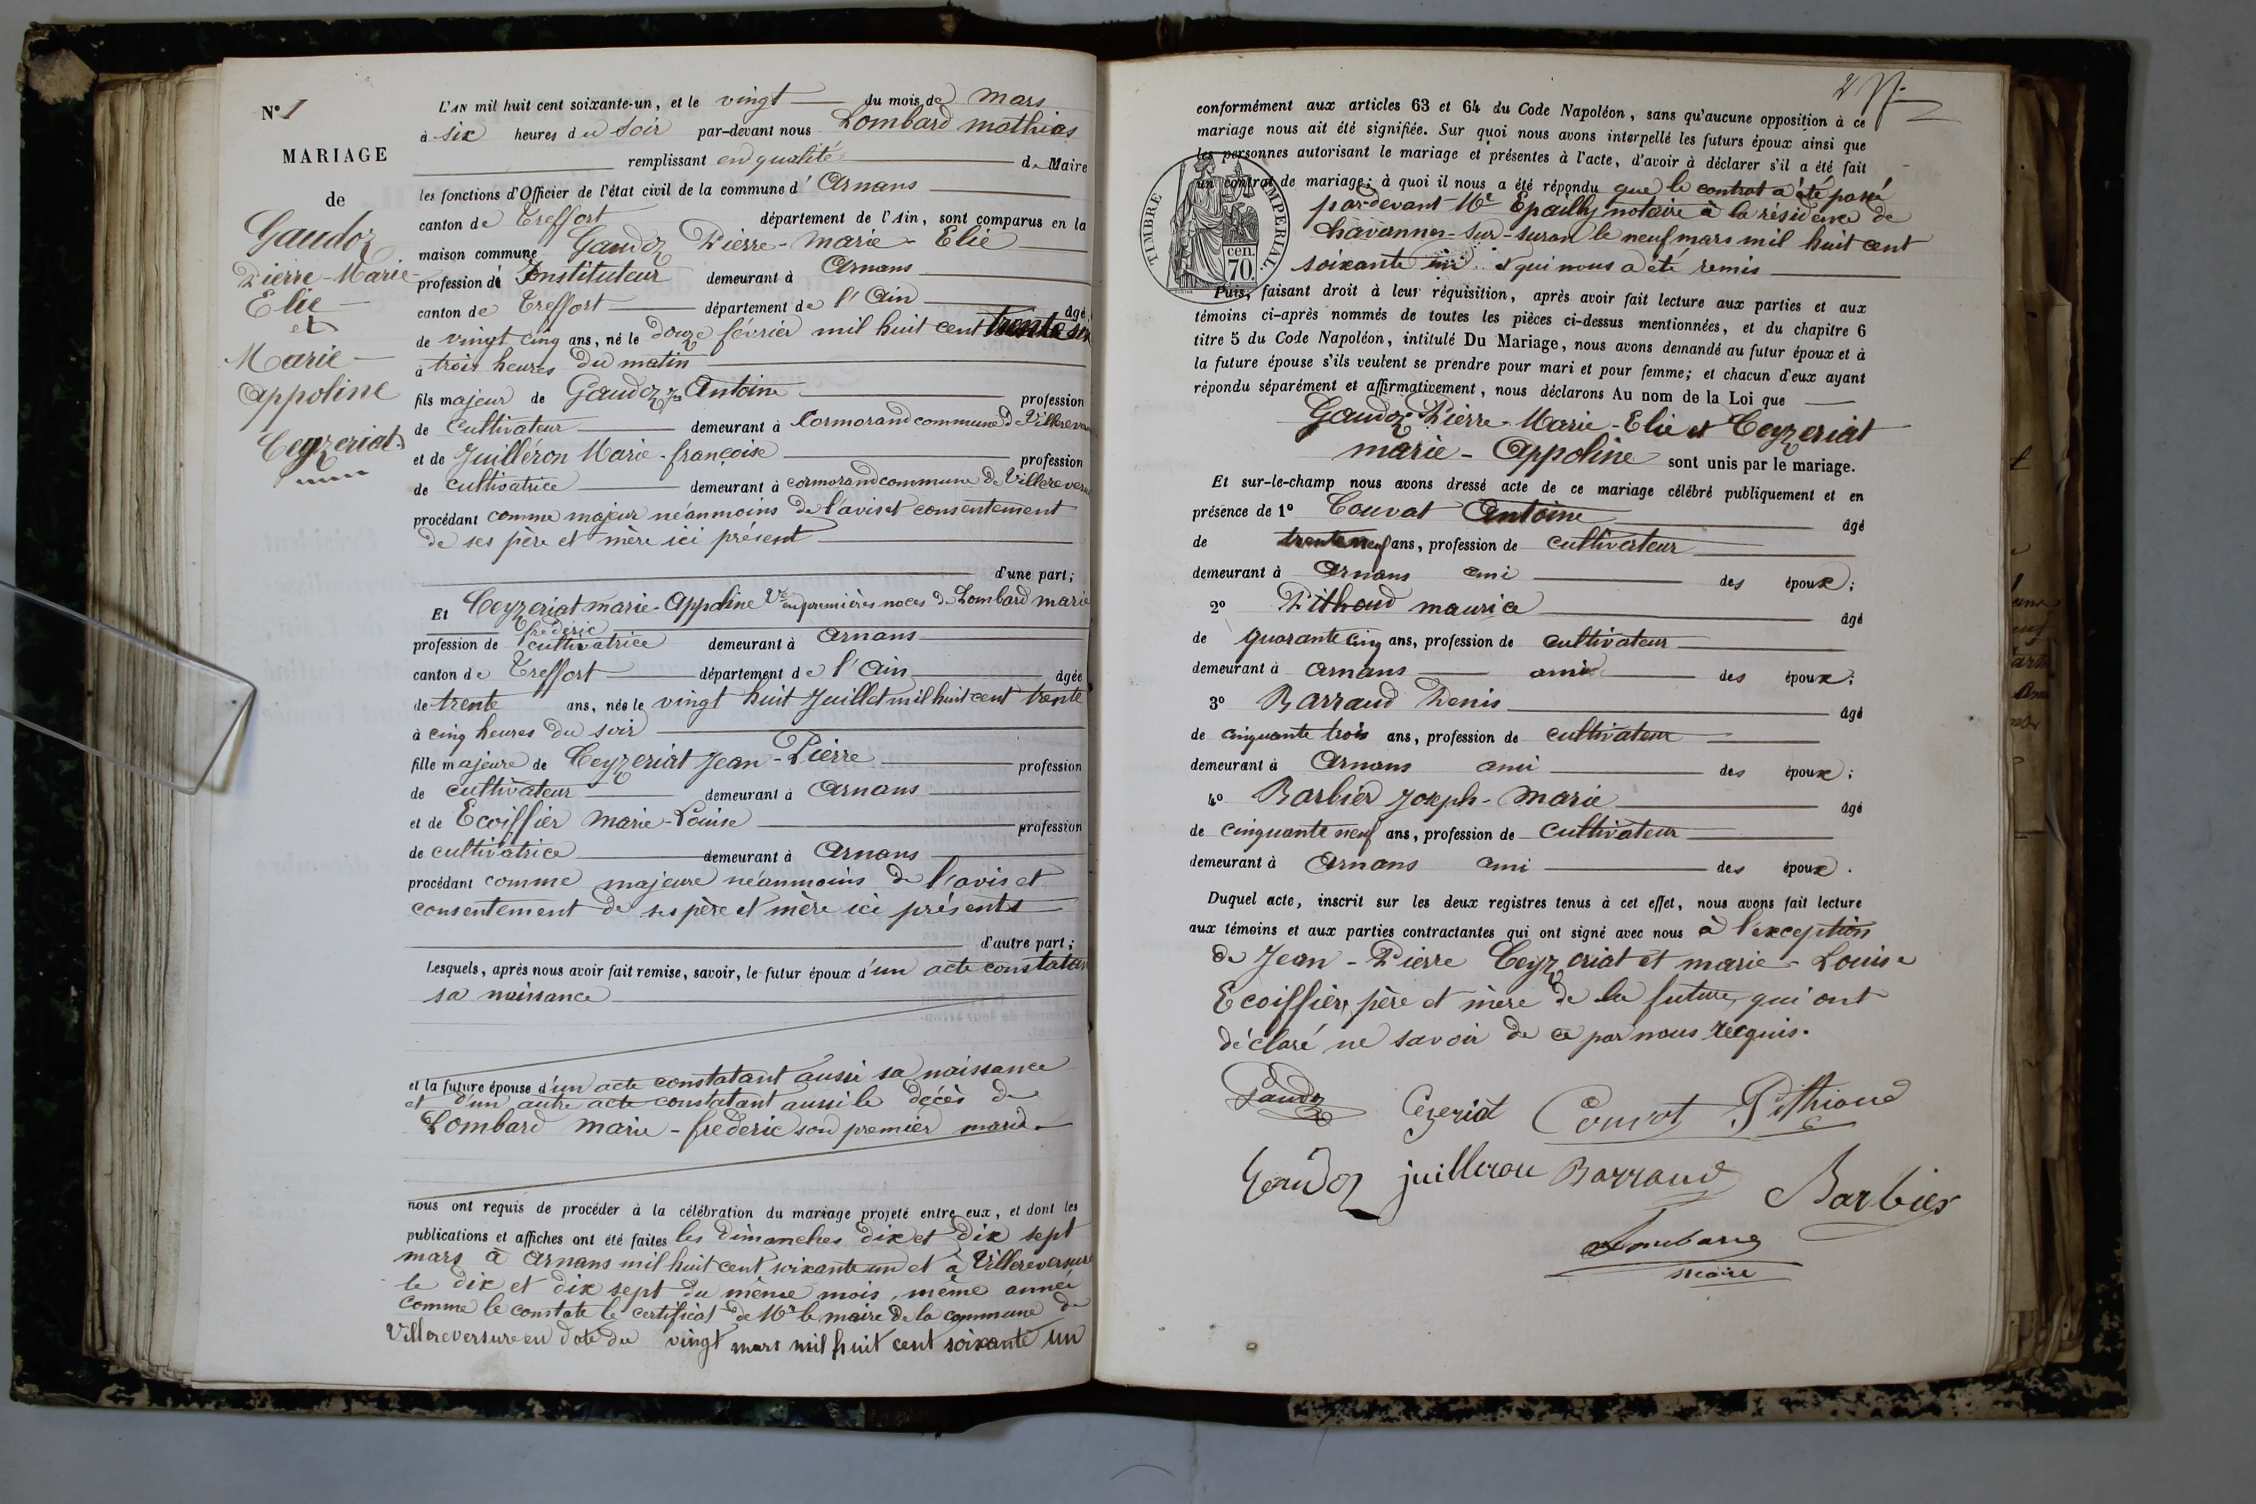 N° 1
MARIAGE
de
Gaudoz
Pierre-Marie-
Elie
et
Marie
Appoline
Ceyzeriat
L'AN mil huit cent soixante-un, et le vingt du mois de Mars
à six heures du soir par-devant nous Lombard Mathias
remplissant en qualité de Maire
les fonctions d'Officier de l'état civil de la commune d' Arnans
canton de Treffort département de l'Ain, sont comparus en la
maison commune Gaudoz Pierre-Marie-Elie
profession d' Instituteur demeurant à Arnans
canton de Treffort département de l'Ain âgé
de vingt cinq ans, né le douze février mil huit cent trente six
à trois heures du matin
fils majeur de Gaudoz Antoine profession
de cultivateur demeurant à Cormorand commune de Villerever
et de Juilléron Marie-françoise profession
de cultivatrice demeurant à cormorand commune de Villerevers
procédant comme majeur néanmoins de l'avis et consentement
de ses père et mère ici présent
d'une part;
Et Ceyzeriat marie-Appoline Vve en premières noces de Lombard marie
frédéric
profession de cultivatrice demeurant à Arnans
canton de Treffort département de l'Ain âgée
de trente ans, née le vingt huit Juillet mil huit cent trente
à cinq heures du soir
fille majeure de Ceyzeriat Jean-Pierre profession
de cultivateur demeurant à Arnans
et de Ecoiffier Marie-Louise profession
de cultivatrice demeurant à Arnans
procédant comme majeure néanmoins de l'avis et
consentement de ses père et mère ici présents
d'autre part;
Lesquels, après nous avoir fait remise, savoir, le futur époux d'un acte constatan
sa naissance
et la future épouse d'un acte constatant aussi sa naissance
et d'un autre acte constatant aussi le décès de
Lombard Marie-frederic son premier mari
nous ont requis de procéder à la célébration du mariage projeté entre eux, et dont les
publications et affiches ont été faites les dimanches dix et dix sept
mars à Arnans mil huit cent soixante un et à Villereversure
le dix et dix sept du même mois, même année
comme le constate le certificat de Mr le maire de la commune de
Villereversure en date du vingt mars mil huit cent soixante un
conformément aux articles 63 et 64 du Code Napoléon, sans qu'aucune opposition à ce
mariage nous ait été signifiée. Sur quoi nous avons interpellé les futurs époux ainsi que
les personnes autorisant le mariage et présentes à l'acte, d'avoir à déclarer s'il a été fait
un contrat de mariage; à quoi il nous a été répondu que le contrat a été passé
par-devant Me Epailly notaire à la résidence de
chavannes-sur-suran le neuf mars mil huit cent
soixante un et qui nous a été remis
TIMBRE IMPERIAL.
cen.
70
Puis, faisant droit à leur réquisition, après avoir fait lecture aux parties et aux
témoins ci-après nommés de toutes les pièces ci-dessus mentionnées, et du chapitre 6
titre 5 du Code Napoléon, intitulé Du Mariage, nous avons demandé au futur époux et à
la future épouse s'ils veulent se prendre pour mari et pour femme; et chacun d'eux ayant
répondu séparément et affirmativement, nous déclarons Au nom de la Loi que
Gaudoz Pierre-Marie-Elie et Ceyzeriat
marie-Appoline sont unis par le mariage.
Et sur-le-champ nous avons dressé acte de ce mariage célébré publiquement et en
présence de 1° Couvat Antoine âgé
de trente neuf ans, profession de cultivateur
demeurant à Arnans ami des époux;
2° Pithoud maurice âgé
de quarante cinq ans, profession de cultivateur
demeurant à arnans ami des époux;
3° Barraud Denis âgé
de cinquante trois ans, profession de cultivateur
demeurant à Arnans ami des époux;
4° Barbier Joseph-Marie âgé
de cinquante neuf ans, profession de cultivateur
demeurant à Arnans ami des époux.
Duquel acte, inscrit sur les deux registres tenus à cet effet, nous avons fait lecture
aux témoins et aux parties contractantes qui ont signé avec nous à l'exception
de Jean-Pierre Ceyzeriat et marie-Louise
Ecoiffier, père et mère de la future, qui ont
déclaré ne savoir de ce par nous recquis.
Gaudoz Cezeriat Couvat Pithioud
Gaudoz juilleron Barraud Barbier
Lombard
maire